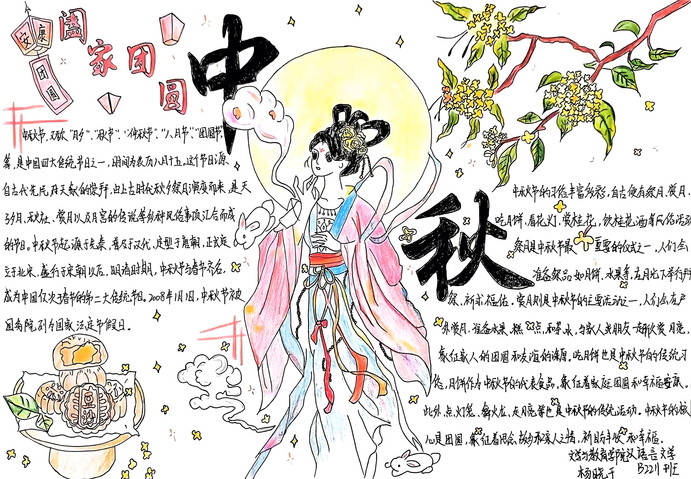 安康
团圆
阖家团圆
中秋
中秋节,又称"月夕"、"秋节"、"仲秋节"、"八月节"、"团圆节"
等,是中国四大传统节日之一,时间为农历八月十五,这个节日源
自古代先民对天象的崇拜,由上古时代秋夕祭月演变而来,是天
的节日。中秋节起源于先秦、普及于汉代、定型于唐朝、正式
立于北宋、盛行于宋朝以后。明清时期,中秋节与春节齐名,
成为中国仅次于春节的第二大传统节日。2008年1月1日,中秋节被
国务院列为国家法定节假日。
豆沙
中秋节的习俗丰富多彩,自古便有祭月、赏月、
吃月饼、看花灯、赏桂花、饮桂花酒等民俗活
祭月是中秋节最重要的仪式之一,人们会
准备祭品如月饼、水果等,在月光下举行
祭,祈求福佑。赏月则是中秋节的主要活动之一,人们会在户
外赏月,准备水果、糕点和茶水,与家人朋友一起欣赏月亮,
象征家人的团圆和友谊的满。吃月饼也是中秋节的传统习
俗,月饼作为中秋节的代表食品,象征着家庭团圆和幸福。
此外,点灯笼、舞火龙、走月亮等也是中秋节的传统活动。中秋节的
心是团圆,象征着
文学与教育学院汉语言文学
B2211班